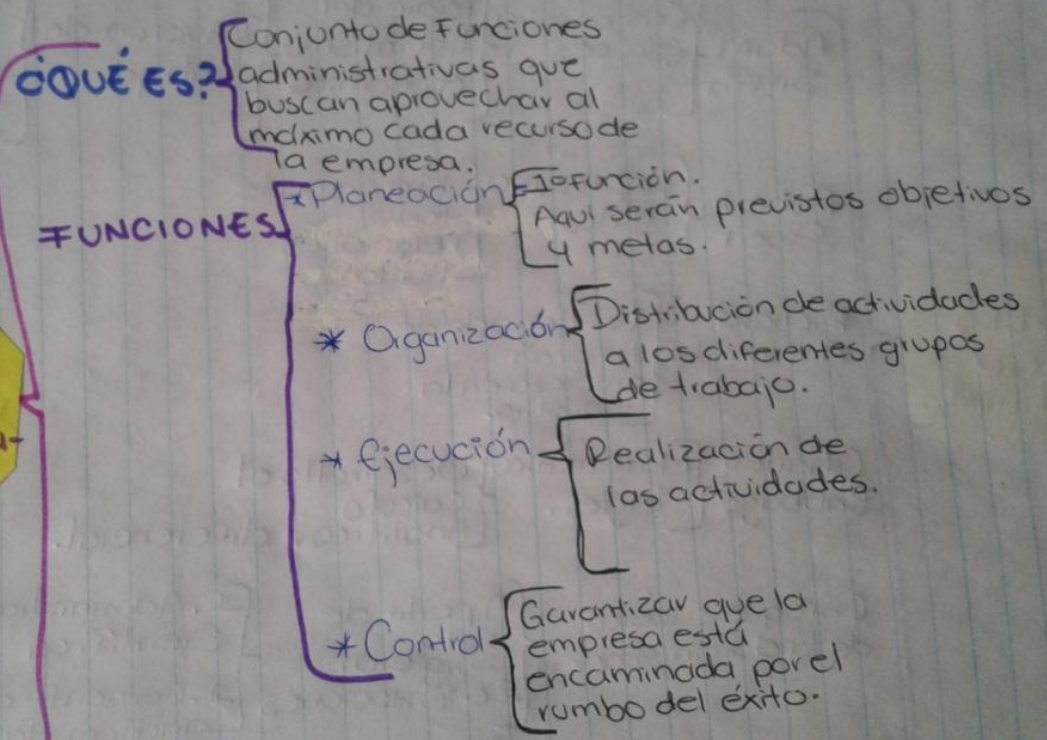 ¿QUÉ ES?
Conjunto de Funciones
administrativas que
buscan aprovechar al
máximo cada recurso de
la empresa.
FUNCIONES
* Planeación
1º función.
Aquí serán previstos objetivos
y metas.
* Organización
Distribución de actividades
a los diferentes grupos
de trabajo.
* Ejecución
Realización de
las actividades.
* Control
Garantizar que la
empresa está
encaminada por el
rumbo del éxito.